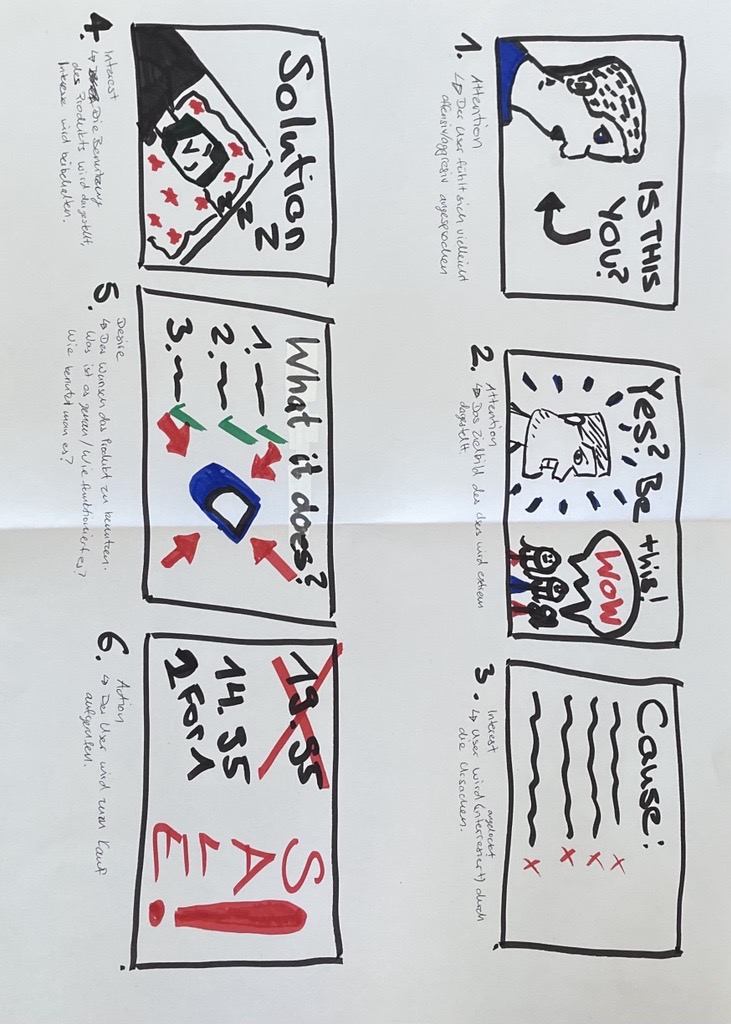 IS THIS
YOU?
1. Attention
↳ Der User fühlt sich vielleicht
offensiv/aggresiv angesprochen
Yes? Be this!
WOW
2. Attention
↳ Das Zielbild des Users wird extrem
dargestellt.
Cause:
3. Interest
angelockt
↳ User wird (interresiert) durch
die Ursachen.
Solution
Z
Z
Z
4. Interest
↳ Die Benutzung
des Produkts wird dargestellt,
Interesse wird beibehalten.
What it does?
1.
2.
3.
5. Desire
↳ Der Wunsch das Produkt zu benutzen.
Was ist es genau/Wie funktioniert es?
Wie benutzt man es?
19.95
14.95
2 For 1
SALE!
6. Action
↳ Der User wird zum Kauf
aufgerufen.